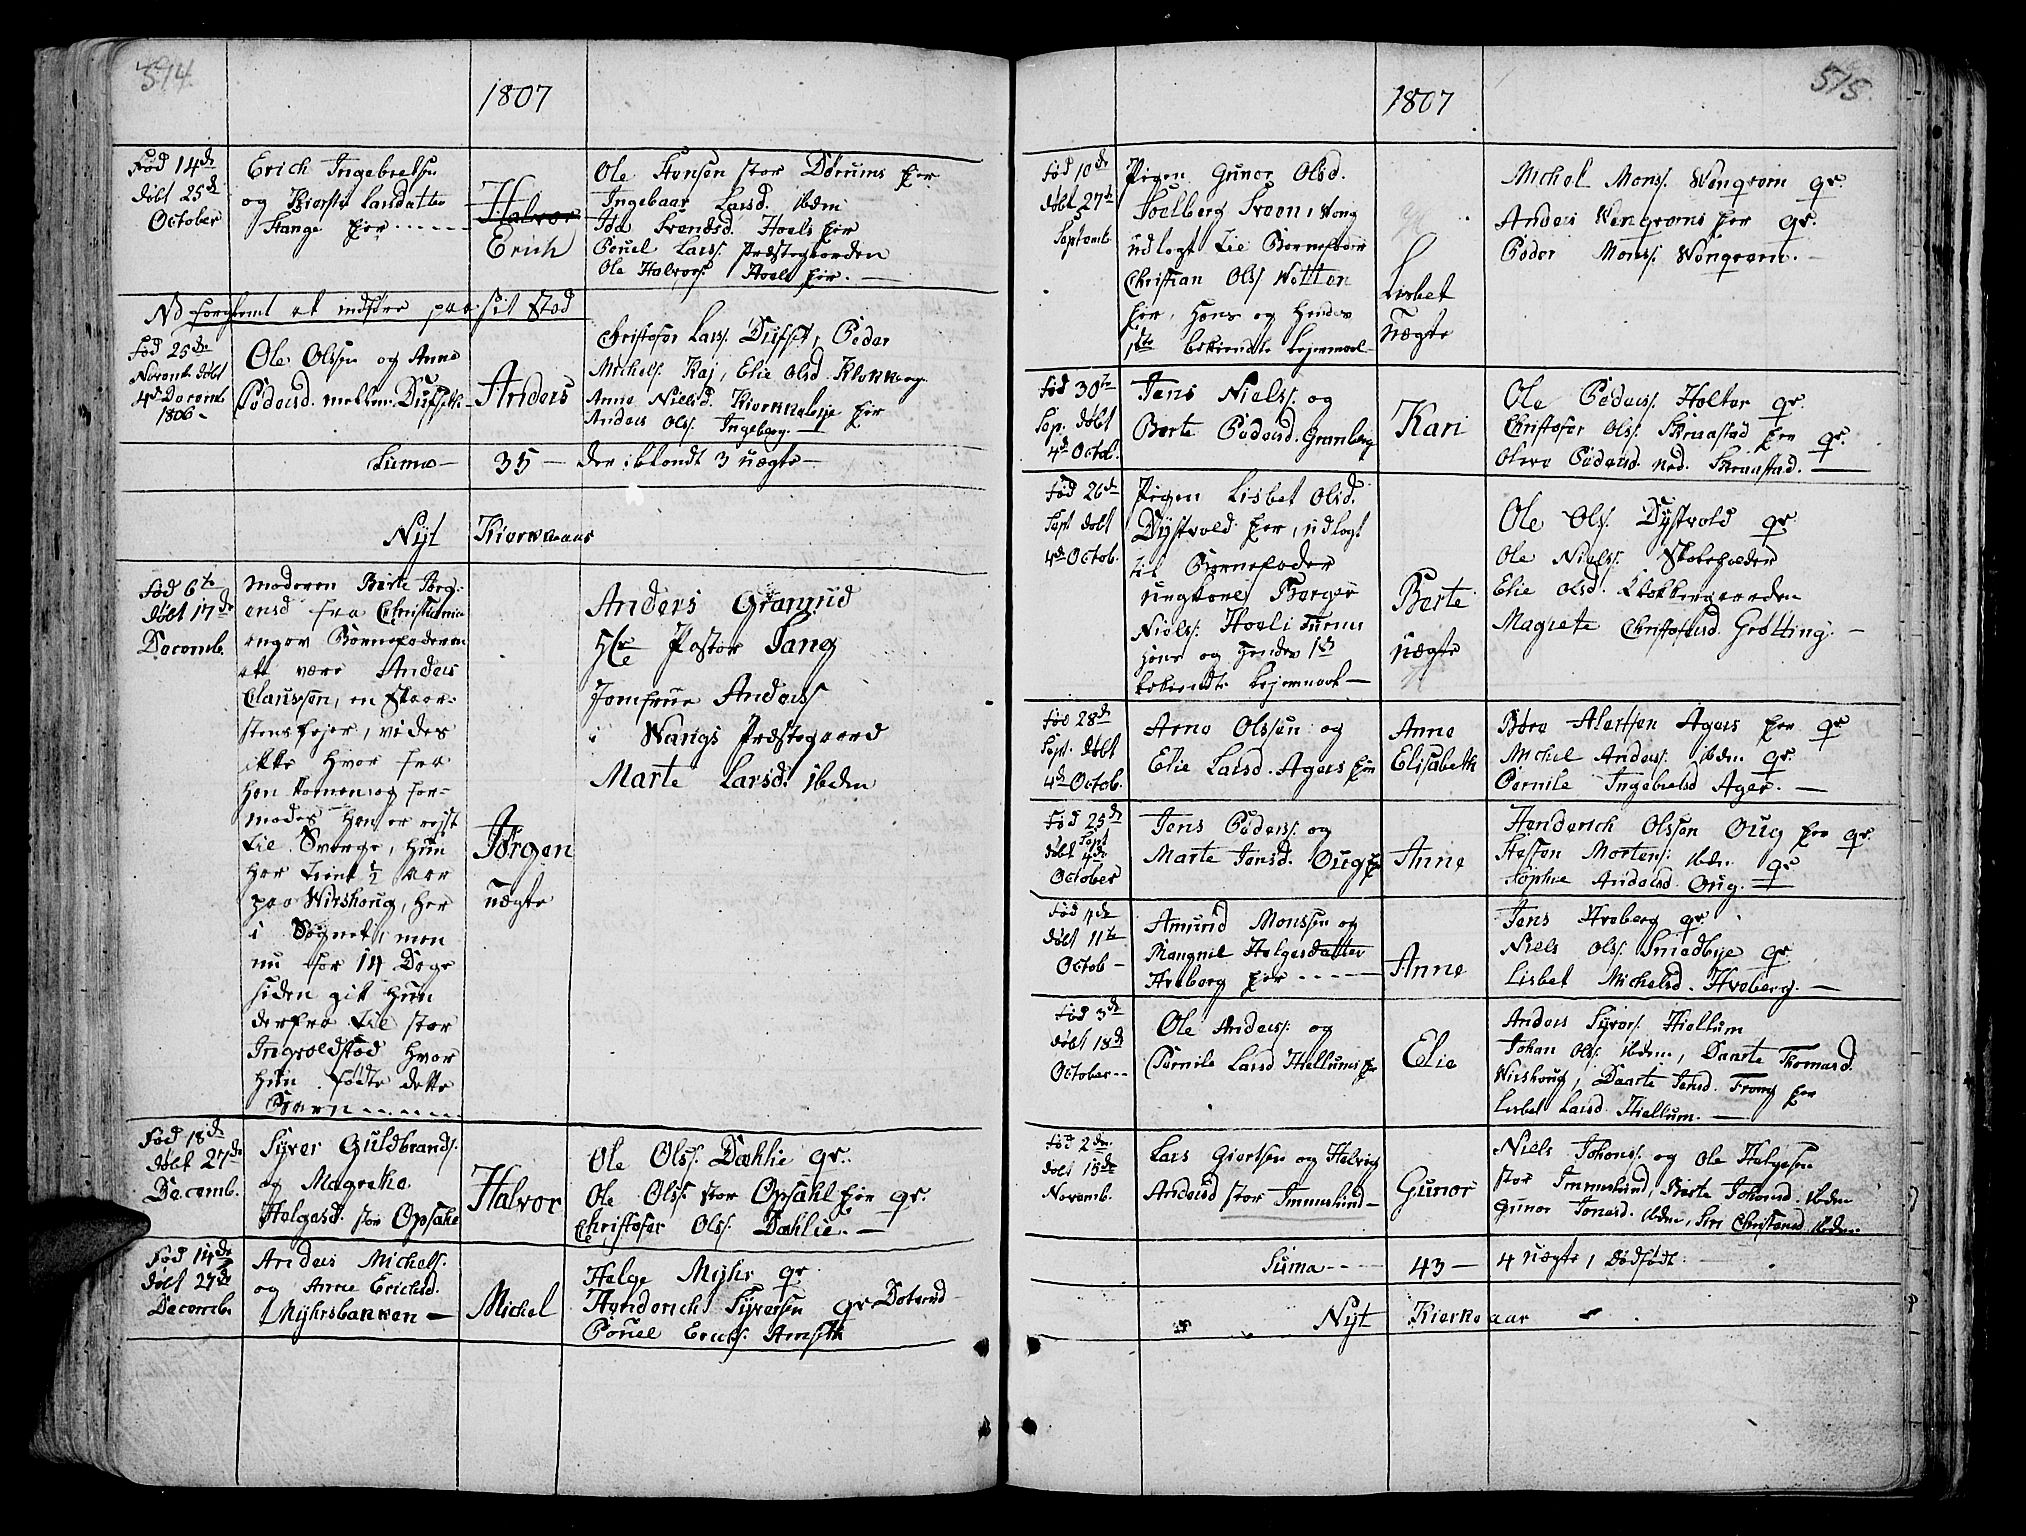 514.
1807
Fød 14de
døbt 25de
October
Erich Ingebretsen
og Kiersti Larsdatter
Stange eier
Halvor
Erich
Ole Hansen stor Dørums eier
Ingebaar Larsd. ibdm
Ida Svendsd. Hoels eier
Pouel Larss. Præstegaarden
Ole Halvors. Hoels eier. —
NB forglemt at indføre paa sit Stæd
Fød 25de
Novemb. døbt
4de Decemb.
1806 —
Ole Olssen og Anne
Pedersd. mellem Dufseth
Anders
Christofer Larss. Dufset, Peder
Michels. Kaj, Elie Olsd. Klokkerg.
Anne Nielsd. Kierknebye eier
Anders Olss. Ingeberg. —
Suma —
35 —
der iblandt 3 uægte —
Nyt
Kierkeaar
Fød 6te
døbt 17de
Decemb.
moderen Berte Jørg-
ensd fra Christiania
angav Barnefaderen
at være Anders
Claussen, en Skaar-
stensfejer, vides
ikke hvor fra
han kommen og for-
modes han er rejst
til Sverge, hun
har tient ½ aar
paa Wirshoug, her
i Sognet, men
nu for 14 Dage
siden gik hun
derfra til stor
Ingvoldstad hvor
hun fødte dette
Barn
Jørgen
uægte
Anders Granrud
Hr Pastor Lang
Jomfrue Anderss
i Wangs Præstegaard
Marte Larsd. ibdm
Fød 18de
døbt 27de
Decemb.
Syver Guldbrands.
og Magrethe
Helgesd. stor Opsahl
Halvor
Ole Olss. Dæhlie gr.
Ole Olss. stor Opsahl eier gr.
Christofer Olss. Dæhlie. —
Fød 14de
døbt 27de
Decemb.
Anders Michels.
og Anne Erichsd.
Myhrsbakken —
Michel
Helge Myhr gr
Hynderich Syversen gr Dolerud
Pouel Erichs. Amseth
515.
1807
Fød 10de
døbt 27de
Septemb.
Pigen Gunor Olsd.
Soelberg Sveen, Wang
udlagt til Barnefader
Christian Olss Wetten
eier, Hans og Hendes
1ste bekiendte Lejermaal
Lisbet
uægte
Michel Monss. Wengrom gr.
Anders Wengroms eier gr.
Peder Monss. Wengrom. —
Fød 30te
Sep. døbt
4de Octob.
Jens Nielss. og
Berte Pedersd. Granberg
Kari
Ole Pederss. Holter gr.
Christofer Olss. Skraastad eier gr.
Olava Pedersd. ned. Skraastad. —
Fød 26de
Sept døbt
4de Octob.
Pigen Lisbet Olsd.
Dystvold eier, udlagt
til Barnefader
ungkarl Berger
Nielss. Hoeli Furnæs
Hans og Hendes 1ste
bekiendte Lejermaal —
Berte
uægte
Ole Olss. Dystvold gr
Ole Nielss. Skoleholder
Elie Olsd. Klokkergaarden
Magrete Christofersd. Grøtting. —
Fød 28de
Sept. døbt
4de Octob.
Arne Olssen og
Elie Larsd. Agers eier
Anne
Elisabeth
Børe Alerssen Agers eier gr
Michel Anderss. ibdm gr.
Pernile Ingebretsd Ager. —
Fød 25de
Sept
døbt 4de
October
Jens Pederss. og
Marte Jensd. Oug eier
Anne
Henderich Olssen Oug eier gr
Hesten Mortens. ibdm gr
Sophie Andersd. Oug. —
Fød 1de
døbt 11te
Octob —
Amund Monssen og
Mangnil Helgesdatter
Hveberg eier
Anne
Jens Hveberg gr.
Niels Olss. Smedbye gr
Lisbet Michelsd. Hveberg. —
Fød 3de
døbt 18de
October
Ole Anderss. og
Pernile Larsd Hiellums eier
Elie
Anders Syvers. Hiellum
Johan Olss. ibdm, Daarte Thomasd.
Wirshoug, Daarte Jensd. Frong eier
Lisbet Larsd. Hiellum. —
Fød 2de
døbt 15de
Novemb.
Lars Giertsen og Helvig
Andersd stor Immerlund —
Gunor
Niels Johans. og Ole Helgesen
stor Immerlund, Berte Johansd. ibdm
Gunor Jonasd. ibdm, Siri Christensd. ibdm
Suma
43 —
4 uægte, 1 dødfødt.
Nyt
Kierkeaar